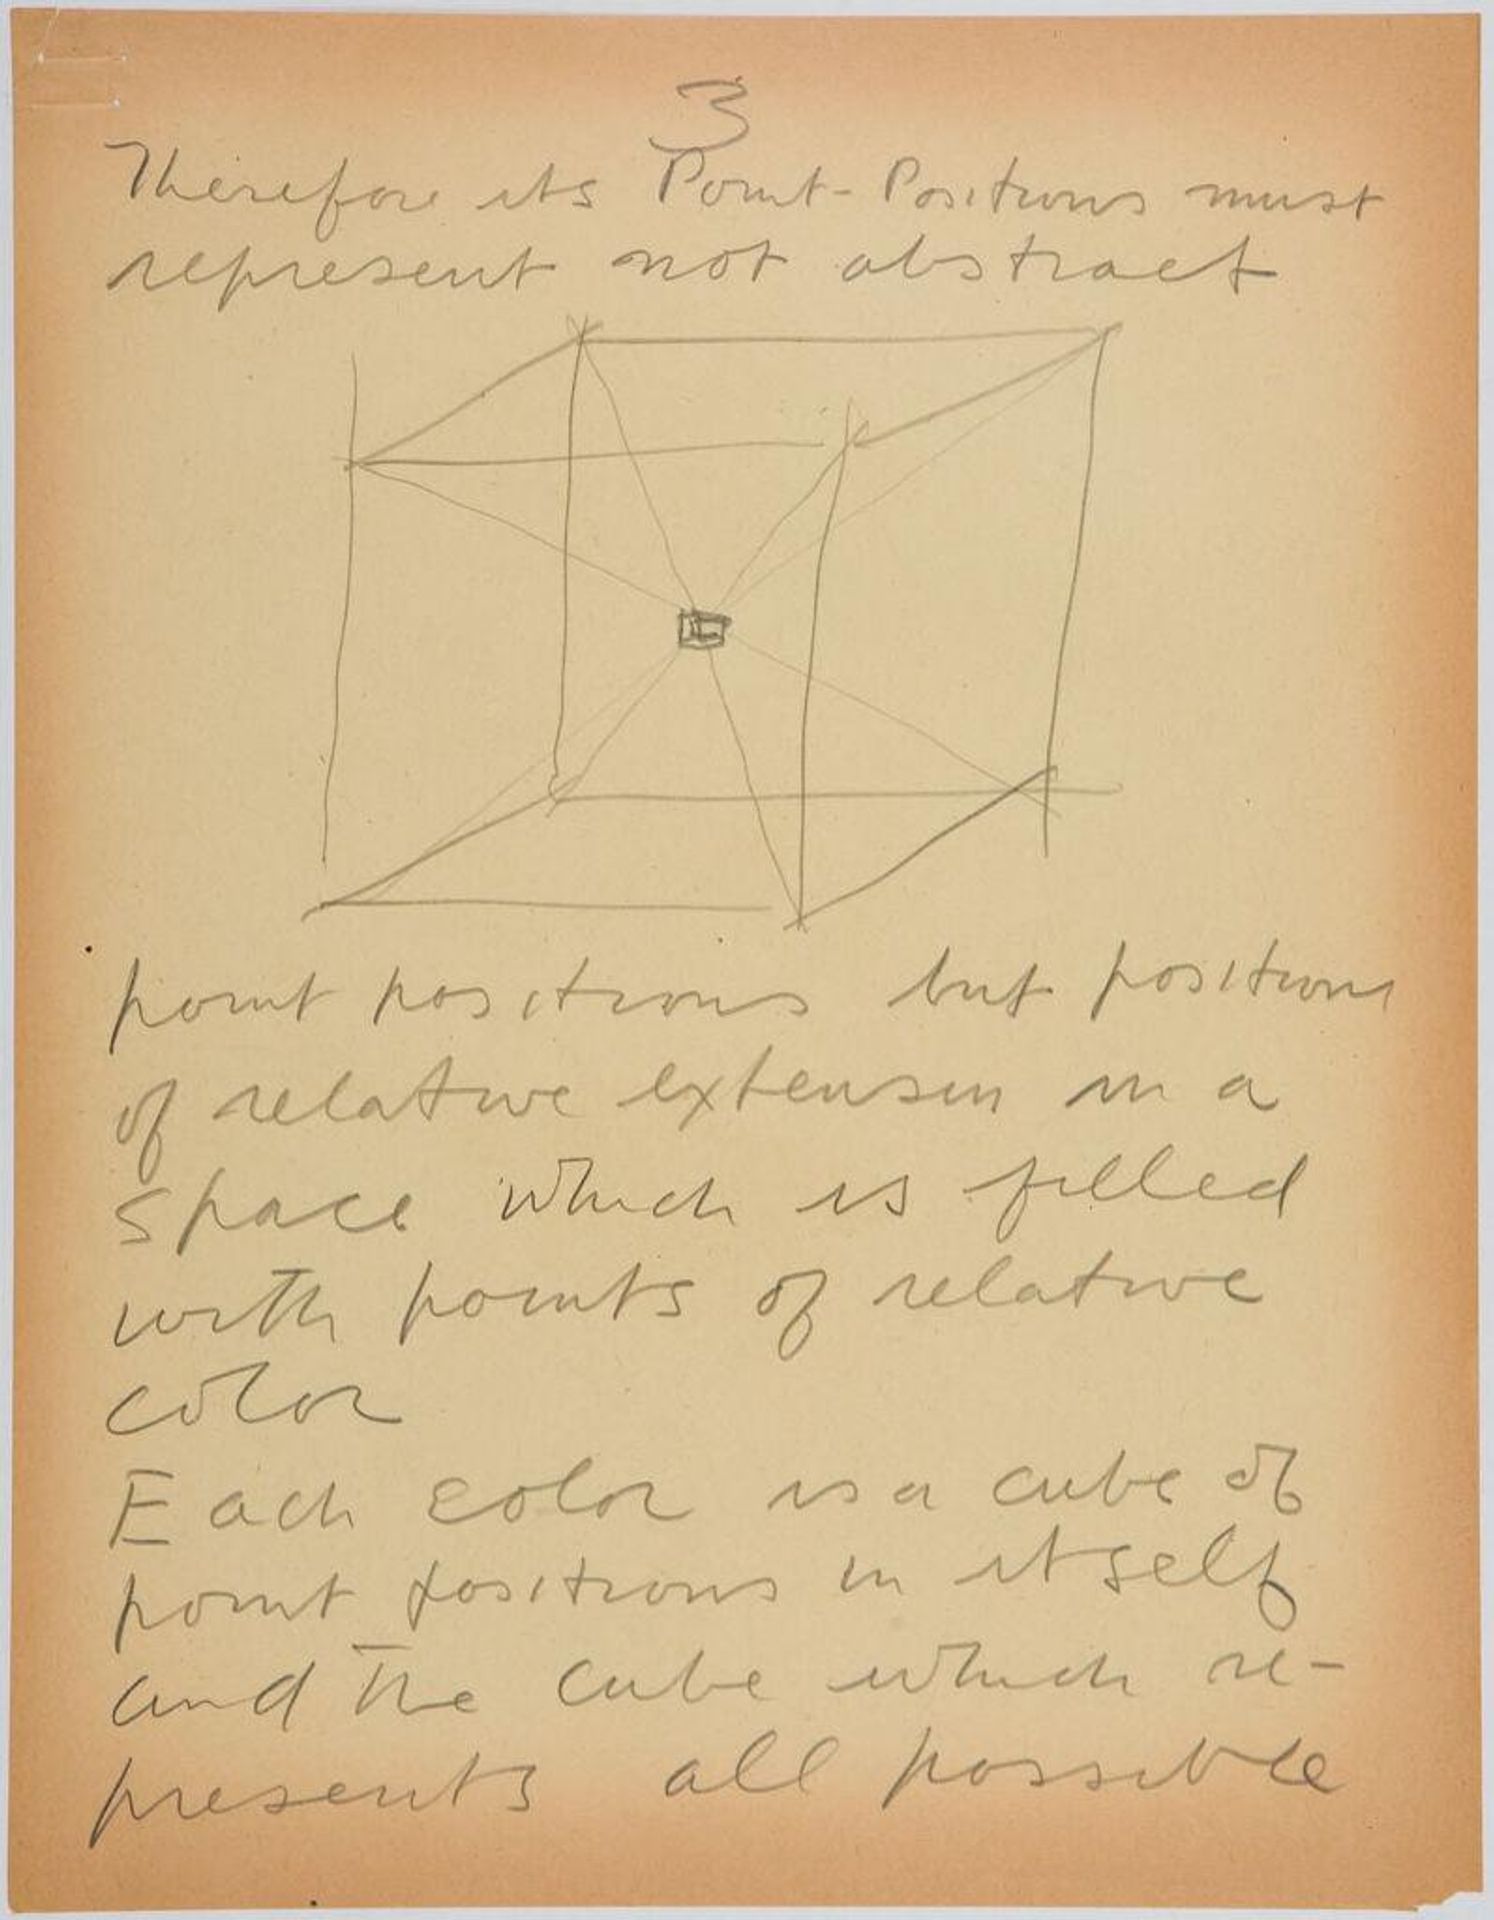 3
Therefore its Point-Positions must
represent not abstract
point positions but positions
of relative extension in a
space which is filled
with points of relative
color
Each color is a cube of
point positions in itself
and the cube which re-
presents all possible